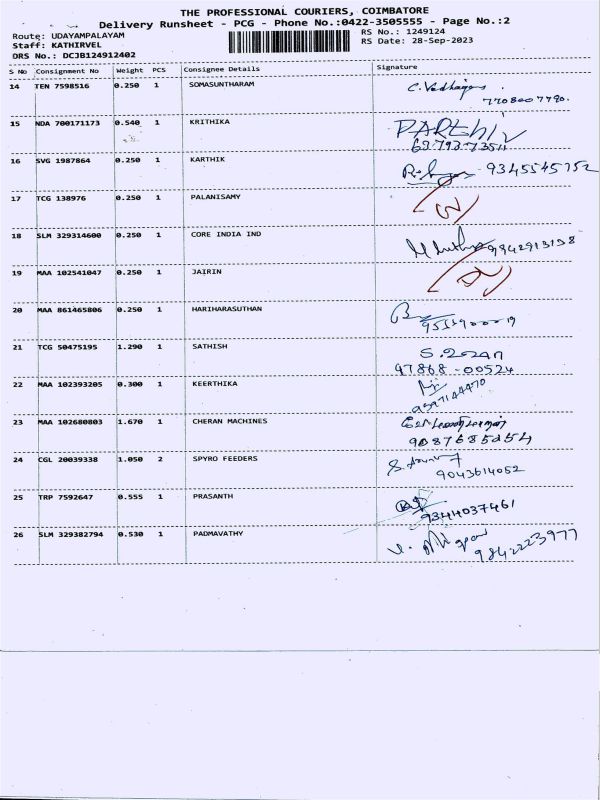 THE PROFESSIONAL COURIERS, COIMBATORE
Delivery Runsheet - PCG - Phone No.:0422-3505555 - Page No.:2
Route: UDAYAMPALAYAM RS No.: 1249124
Staff: KATHIRVEL RS Date: 28-Sep-2023
DRS No.: DCJB124912402
S No Consignment No Weight PCS Consignee Details Signature
14 TEN 7598516 0.250 1 SOMASUNTHARAM
7708007790.
15 NDA 700171173 0.540 1 KRITHIKA PARTHIV
16 SVG 1987864 0.250 1 KARTHIK 9345545752
17 TCG 138976 0.250 1 PALANISAMY
18 SLM 329314600 0.250 1 CORE INDIA IND 9842913158
19 MAA 102541047 0.250 1 JAIRIN
20 MAA 861465806 0.250 1 HARIHARASUTHAN
21 TCG 50475195 1.290 1 SATHISH
97868-00524
22 MAA 102393205 0.300 1 KEERTHIKA
9597144470
23 MAA 102680803 1.670 1 CHERAN MACHINES
9087685254
24 CGL 20039338 1.050 2 SPYRO FEEDERS
9043614052
25 TRP 7592647 0.555 1 PRASANTH
9344037461
26 SLM 329382794 0.530 1 PADMAVATHY
9842223977